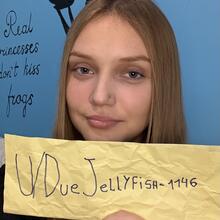 Real
princesses
don't kiss
frogs
U/DueJellyfish-1146